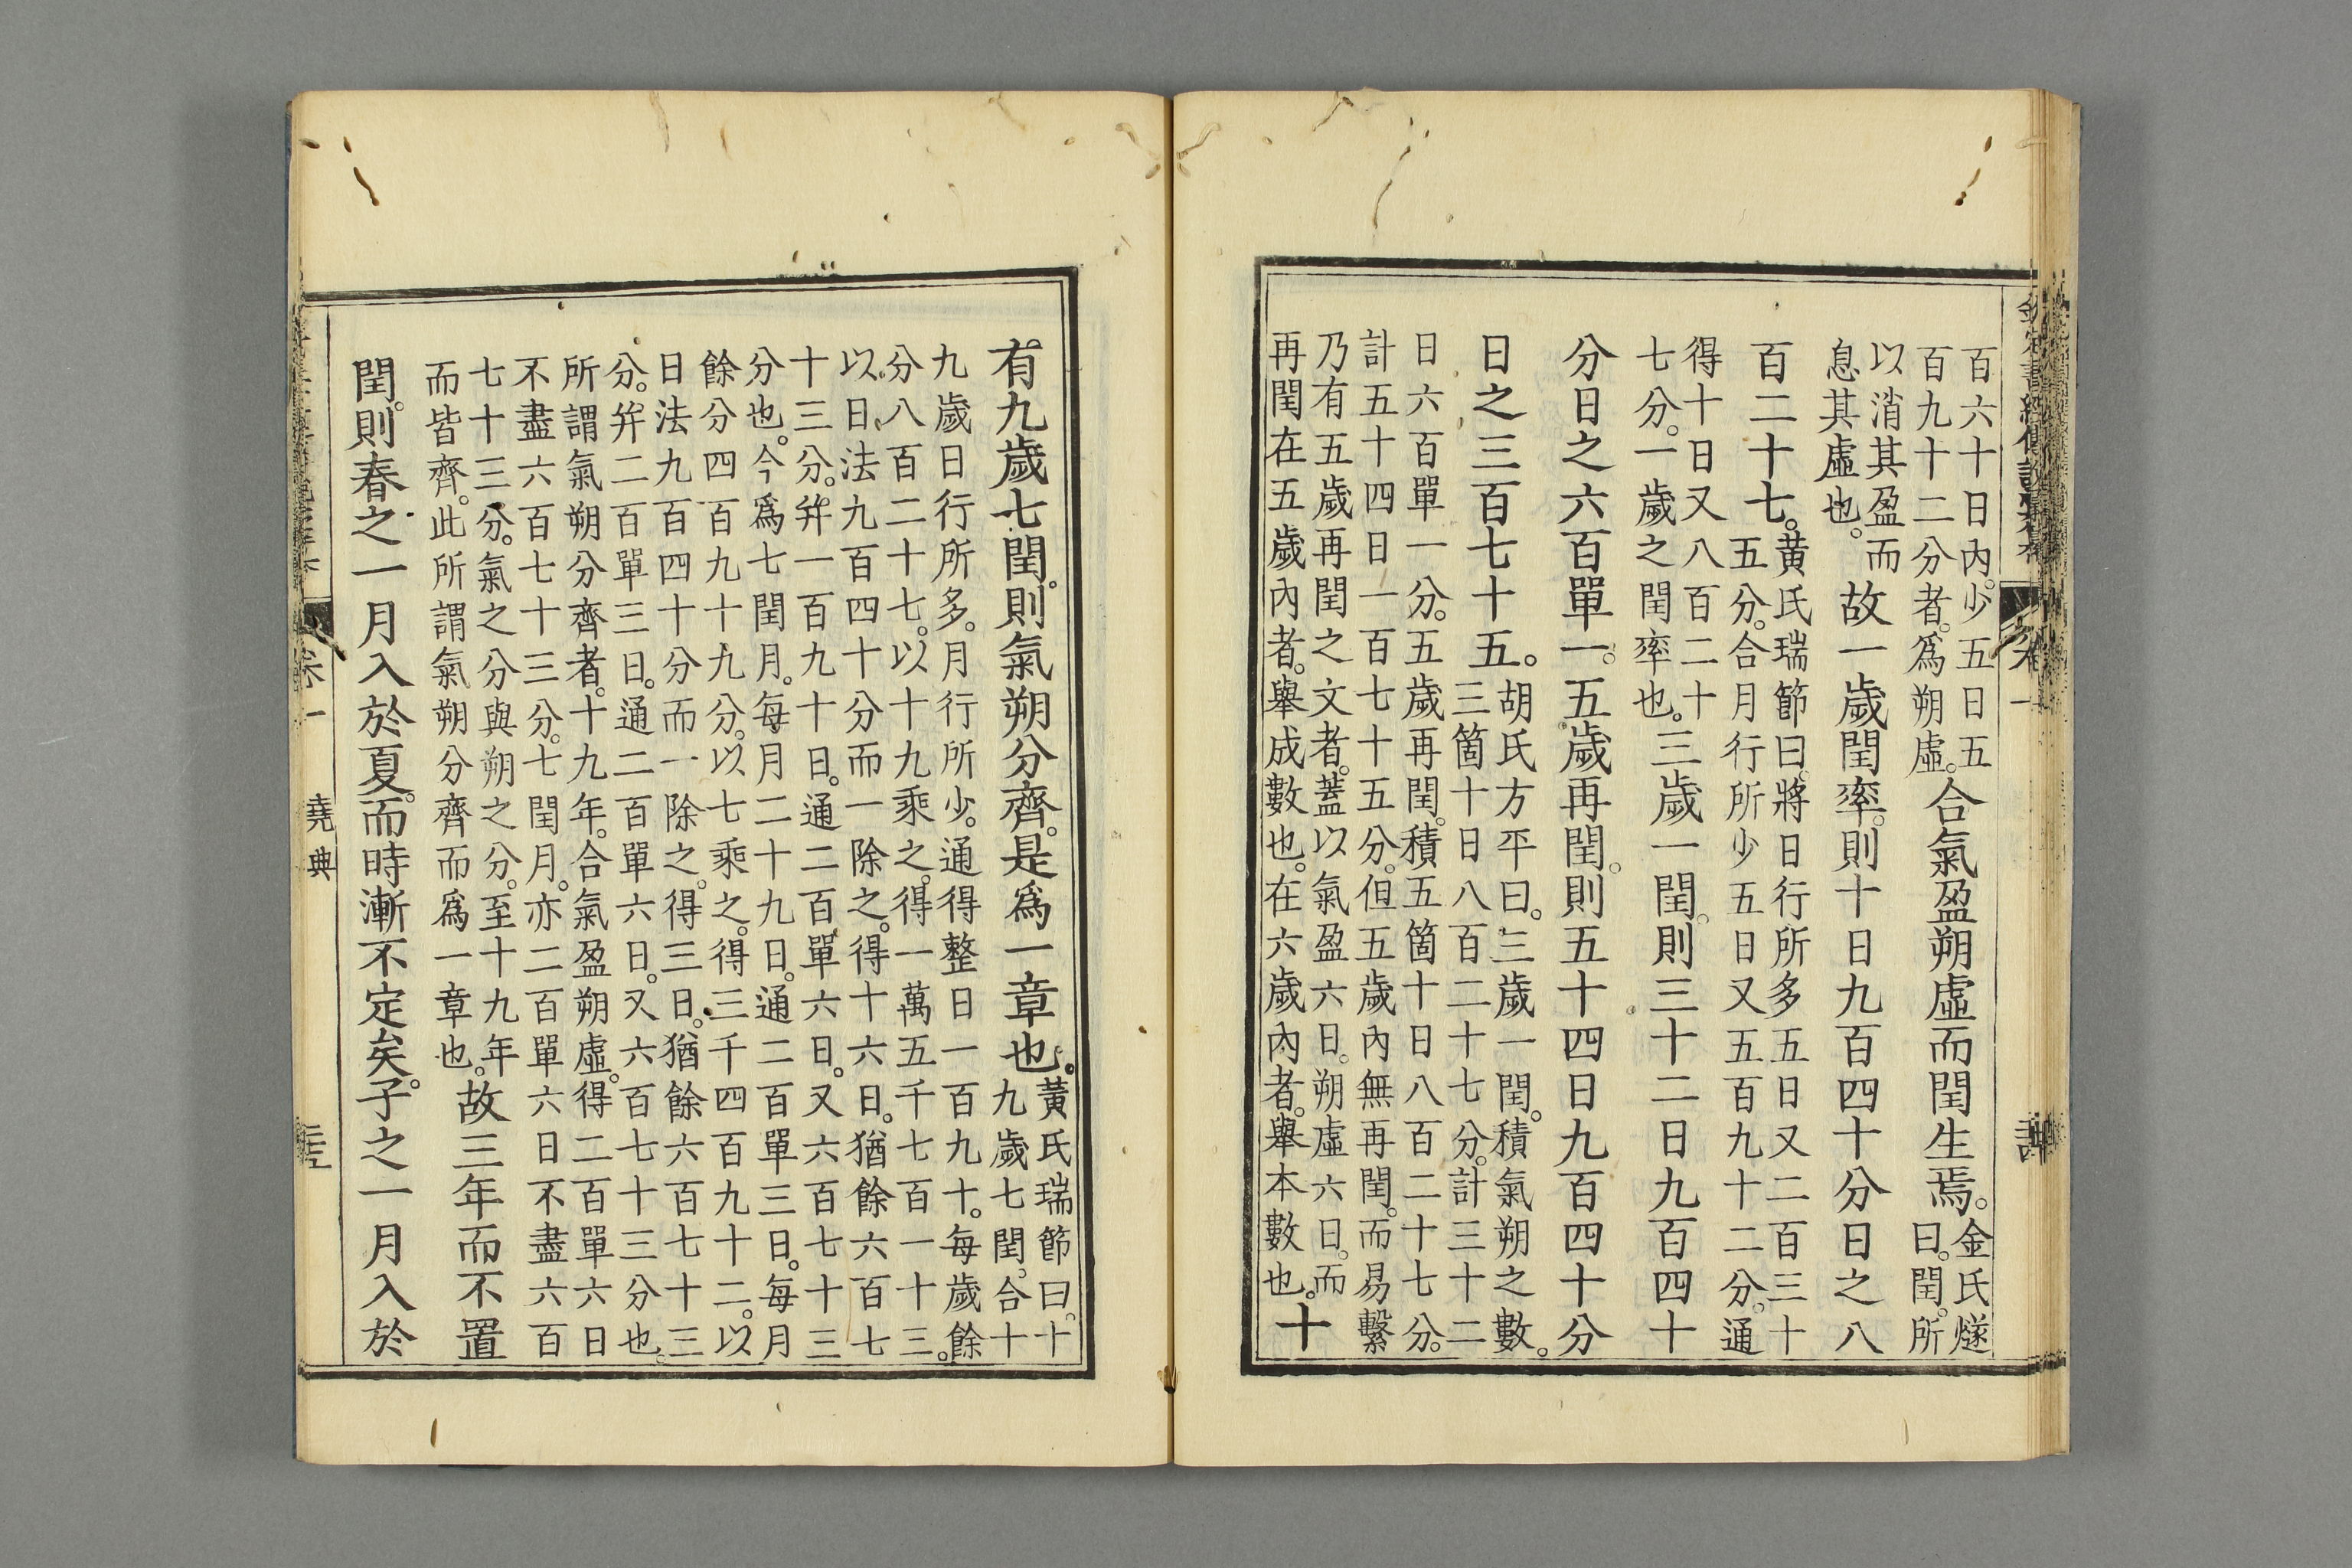 欽定書經傳說彙纂
卷一
百六十日內。少五日五
百九十二分者。爲朔虛。
合氣盈朔虛而閏生焉。
金氏燧
曰。閏。所
以消其盈而
息其虛也。
故一歲閏率。則十日九百四十分日之八
百二十七。
黃氏瑞節曰。將日行所多五日又二百三十
五分。合月行所少五日又五百九十二分。通
得十日又八百二十
七分。一歲之閏率也。
三歲一閏。則三十二日九百四十
分日之六百單一。五歲再閏。則五十四日九百四十分
日之三百七十五。
胡氏方平曰。三歲一閏。積氣朔之數。
三箇十日八百二十七分。計三十二
日六百單一分。五歲再閏。積五箇十日八百二十七分。
計五十四日一百七十五分。但五歲內無再閏。而易繫
乃有五歲再閏之文者。蓋以氣盈六日。朔虛六日。而
再閏在五歲內者。舉成數也。在六歲內者。舉本數也。
十
有九歲七閏。則氣朔分齊。是爲一章也。
黃氏瑞節曰。十
九歲七閏。合十
九歲日行所多。月行所少。通得整日一百九十。每歲餘
分八百二十七。以十九乘之。得一萬五千七百一十三。
以日法九百四十分而一除之。得十六日。猶餘六百七
十三分。幷一百九十日。通二百單六日。又六百七十三
分也。今爲七閏月。每月二十九日。通二百單三日。每月
餘分四百九十九分。以七乘之。得三千四百九十二。以
日法九百四十分而一除之。得三日。猶餘六百七十三
分。幷二百單三日。通二百單六日。又六百七十三分也。
所謂氣朔分齊者。十九年。合氣盈朔虛。得二百單六日
不盡六百七十三分。七閏月。亦二百單六日不盡六百
七十三分。氣之分與朔之分。至十九年
而皆齊。此所謂氣朔分齊而爲一章也。
故三年而不置
閏。則春之一月入於夏。而時漸不定矣。子之一月入於
卷一
堯典